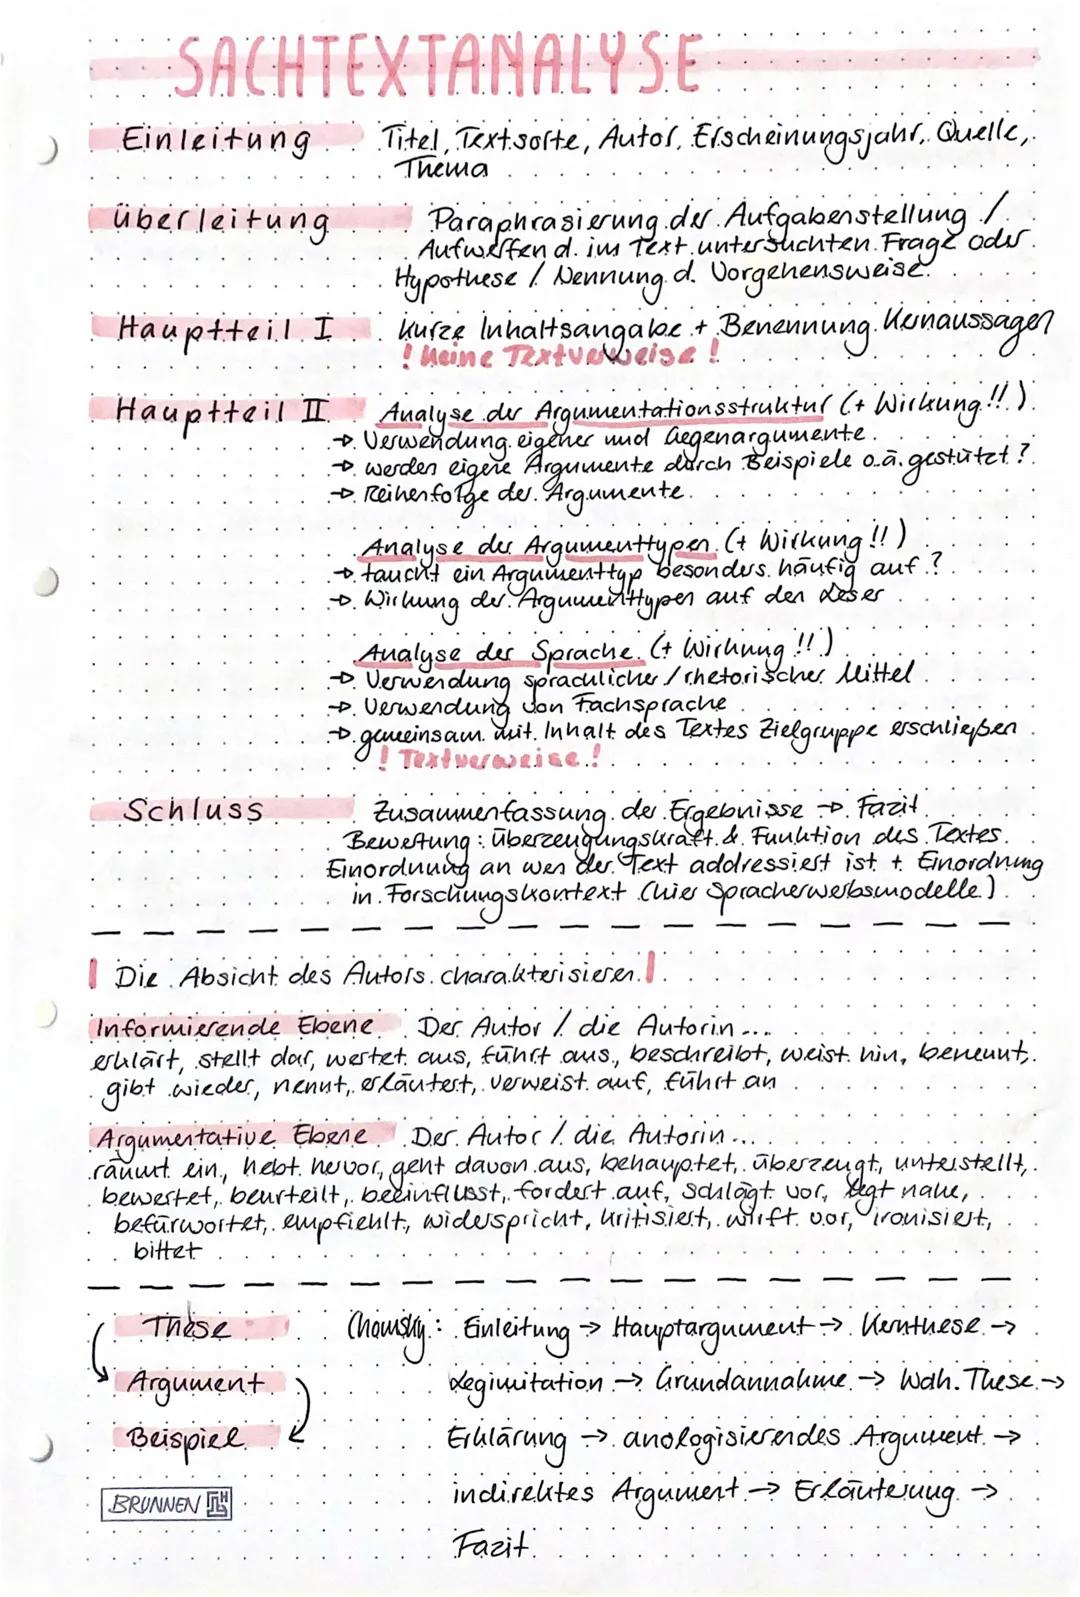 SACHTEXTANALYSE
Einleitung Titel, Textsorte, Autor, Erscheinungsjahr, Quelle,
Thema
Überleitung Paraphrasierung der Aufgabenstellung /
Aufwerfen d. im Text untersuchten Frage oder
Hypothese / Nennung d. Vorgehensweise.
Hauptteil I kurze Inhaltsangabe + Benennung Kernaussagen
! Keine Textverweise !
Hauptteil II Analyse der Argumentationsstruktur (+ Wirkung!!)
→ Verwendung eigener und Gegenargumente
→ werden eigene Argumente durch Beispiele o.ä. gestützt?
→ Reihenfolge der Argumente
Analyse der Argumenttypen (+ Wirkung!!)
→ taucht ein Argumenttyp besonders häufig auf?
→ Wirkung der Argumenttypen auf den Leser
Analyse der Sprache (+ Wirkung!!)
→ Verwendung sprachlicher / rhetorischer Mittel
→ Verwendung von Fachsprache
→ gemeinsam mit Inhalt des Textes Zielgruppe erschließen
! Textverweise !
Schluss Zusammenfassung der Ergebnisse → Fazit
Bewertung: Überzeugungskraft & Funktion des Textes
Einordnung an wen der Text addressiert ist + Einordnung
in Forschungskontext (hier Spracherwerbsmodelle)
| Die Absicht des Autors charakterisieren |
Informierende Ebene Der Autor / die Autorin...
erklärt, stellt dar, wertet aus, führt aus, beschreibt, weist hin, benennt,
gibt wieder, nennt, erläutert, verweist auf, führt an
Argumentative Ebene Der Autor / die Autorin...
räumt ein, hebt hervor, geht davon aus, behauptet, überzeugt, unterstellt,
bewertet, beurteilt, beeinflusst, fordert auf, schlägt vor, legt nahe,
befürwortet, empfiehlt, widerspricht, kritisiert, wirft vor, ironisiert,
bittet
These Chomsky: Einleitung → Hauptargument → Kernthese →
Argument Legimitation → Grundannahme → Wdh. These →
Beispiel Erklärung → anologisierendes Argument →
BRUNNEN indirektes Argument → Erläuterung →
Fazit